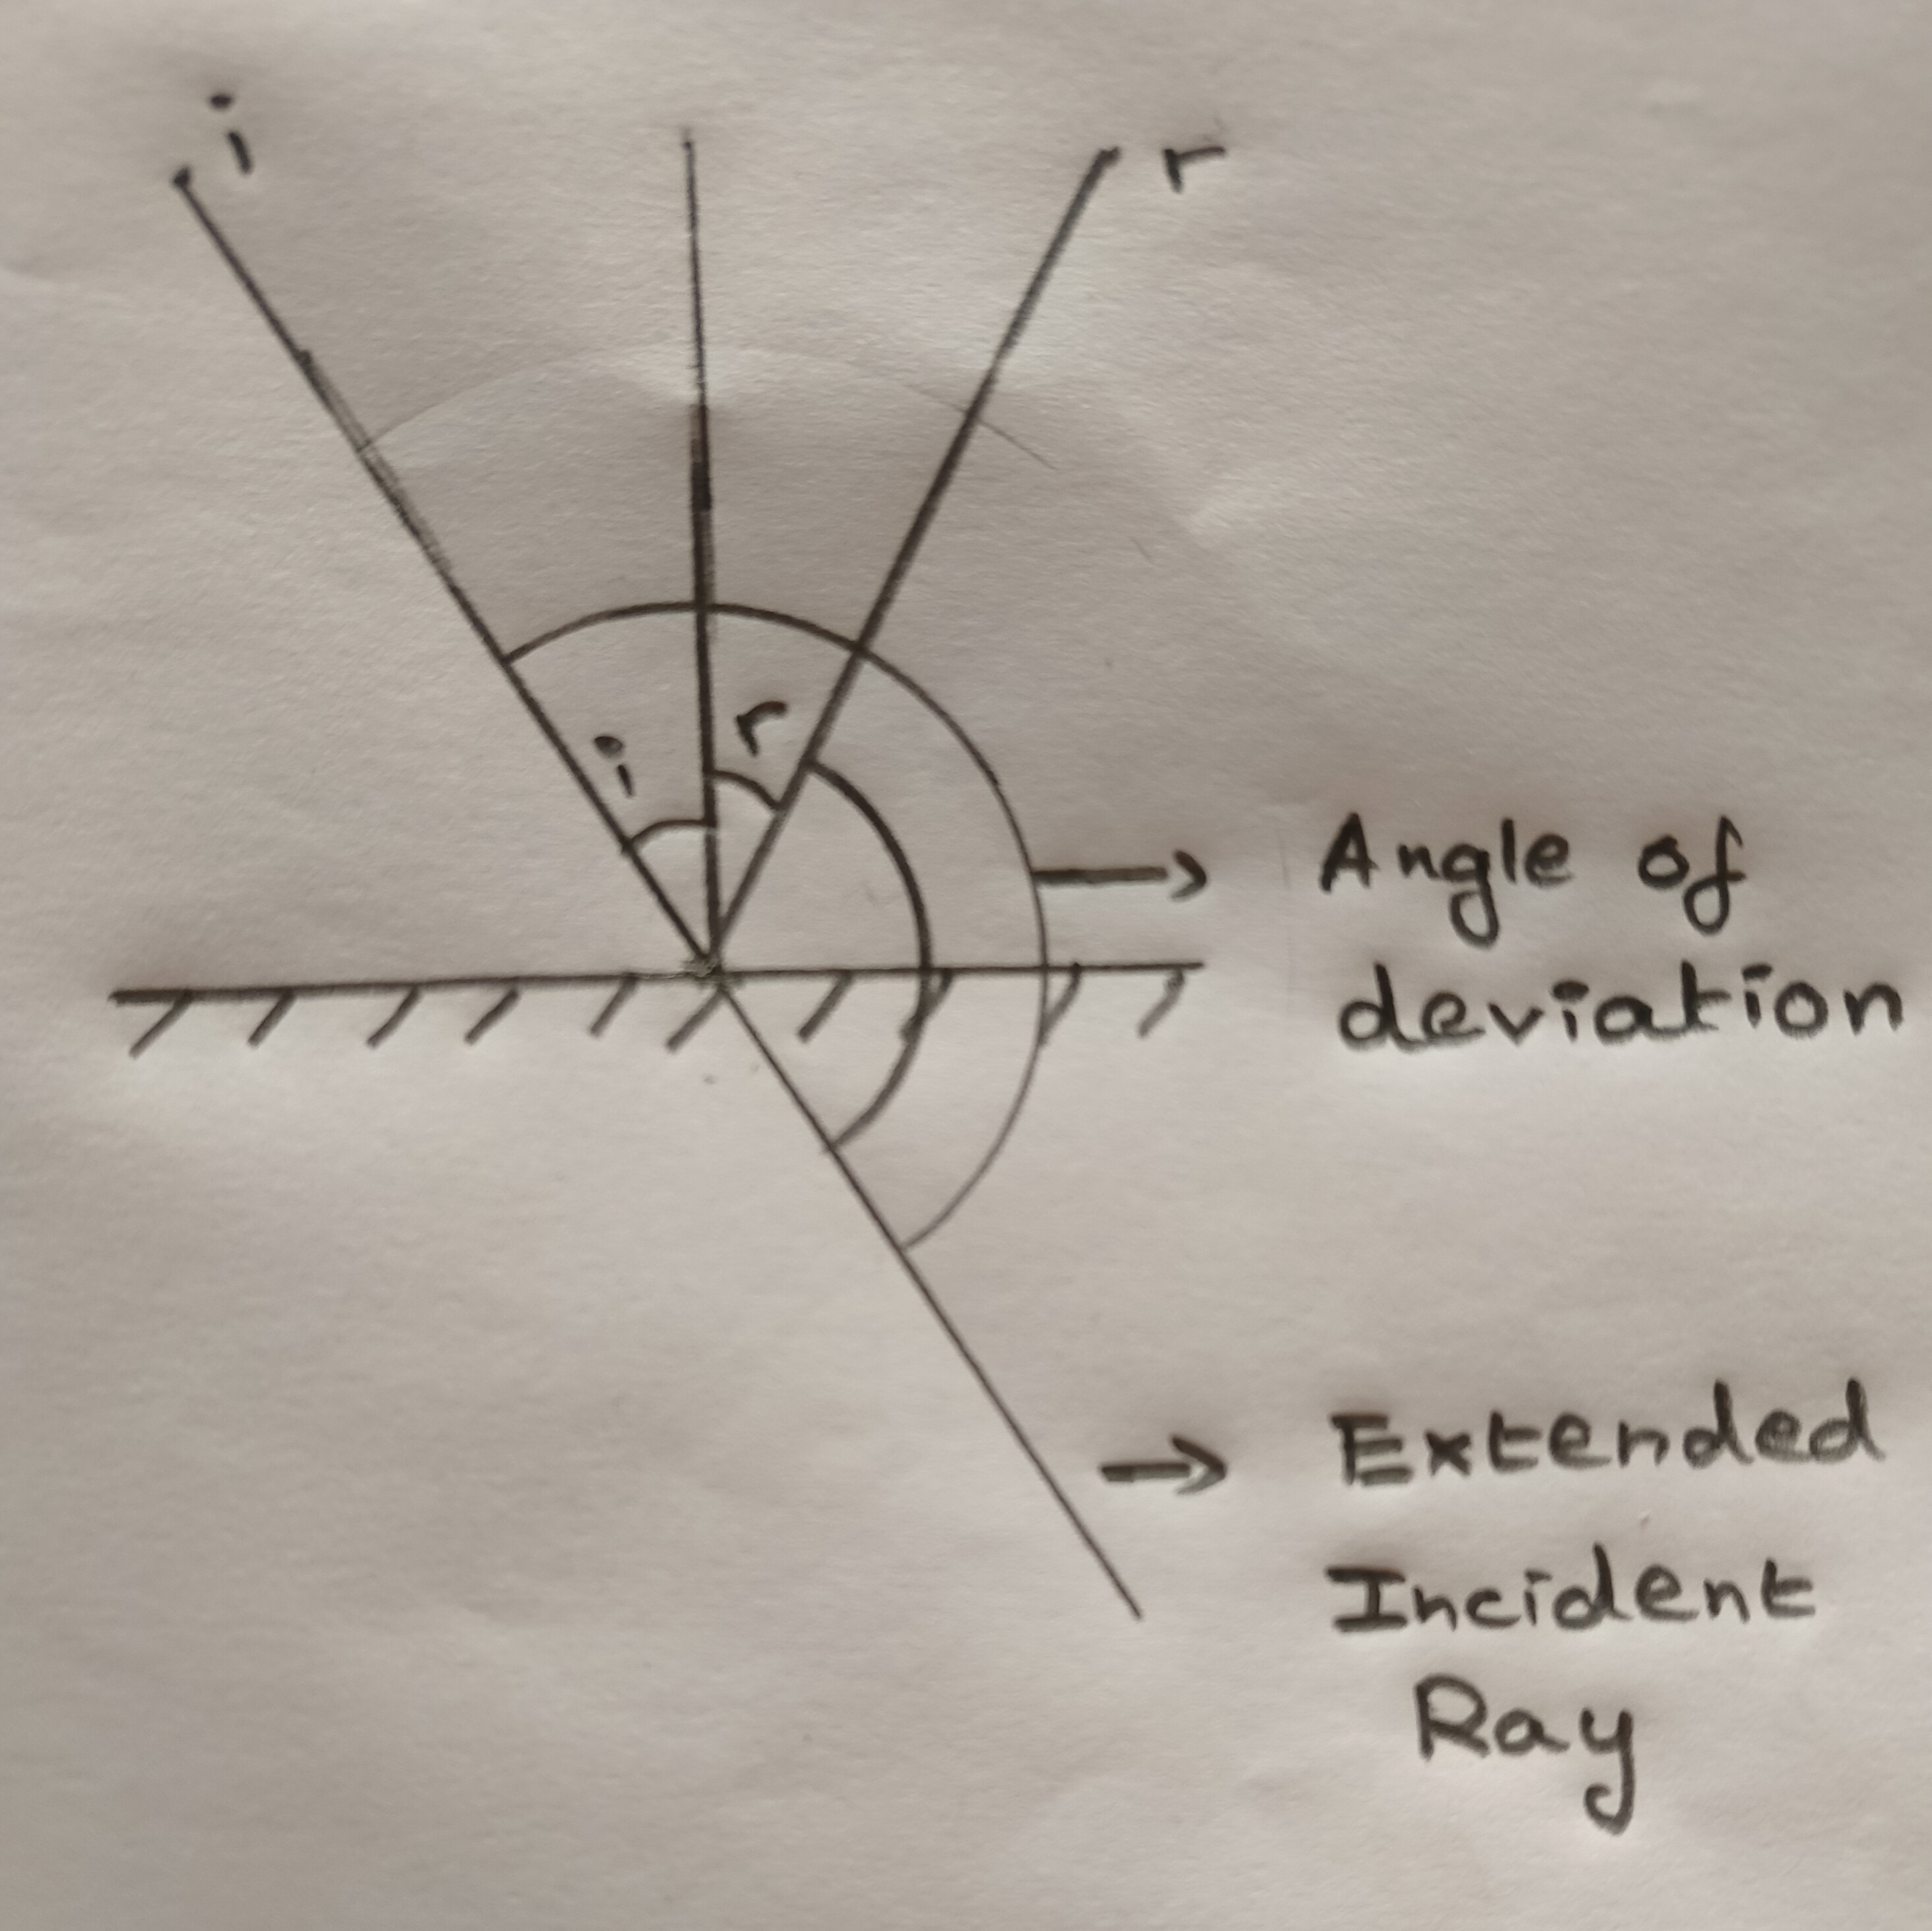 i
r
i
r
Angle of
deviation
Extended
Incident
Ray